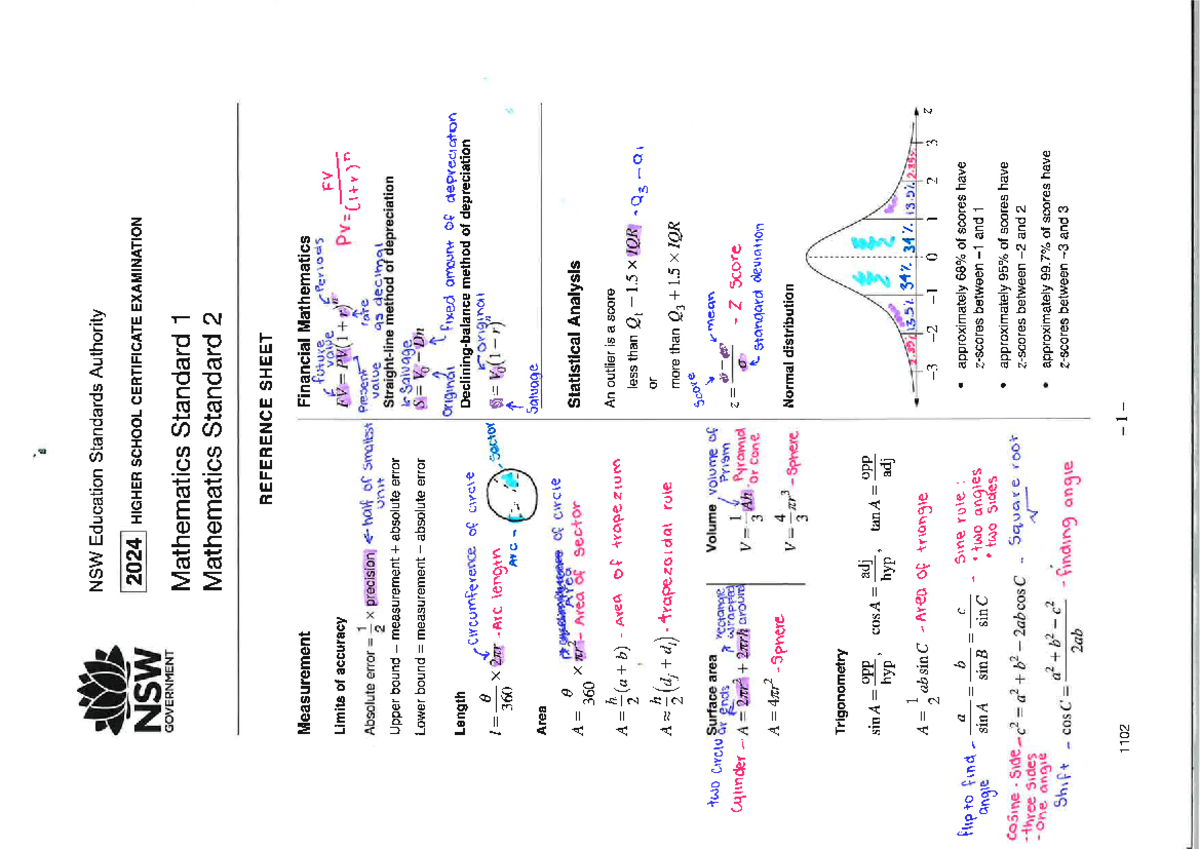 NSW
GOVERNMENT
NSW Education Standards Authority
2024 HIGHER SCHOOL CERTIFICATE EXAMINATION
Mathematics Standard 1
Mathematics Standard 2
REFERENCE SHEET
Measurement
Limits of accuracy
Absolute error = 1/2 × precision ← half of smallest unit
Upper bound = measurement + absolute error
Lower bound = measurement − absolute error
Length
circumference of circle
l = θ/360 × 2πr - Arc length
Arc - sector
Area
Area of circle
A = θ/360 × πr² - Area of sector
A = h/2 (a + b) - Area of trapezium
A ≈ h/2 (d_f + d_l) - trapezoidal rule
Surface area
two circle or ends
rectangle wrapped around
Cylinder - A = 2πr² + 2πrh
A = 4πr² - Sphere
Volume volume of Prism
V = 1/3 Ah - Pyramid or Cone
V = 4/3 πr³ - Sphere
Trigonometry
sin A = opp/hyp, cos A = adj/hyp, tan A = opp/adj
A = 1/2 ab sin C - Area of triangle
flip to find angle - a/sin A = b/sin B = c/sin C - Sine rule:
• two angles
• two sides
Cosine - side - c² = a² + b² − 2ab cos C - Square root √
- three sides
- one angle
Shift - cos C = (a² + b² − c²)/2ab - finding angle
1102
Financial Mathematics
future value
Periods
FV = PV(1 + r)ⁿ
PV = FV/(1+r)ⁿ
Present value
rate as decimal
Straight-line method of depreciation
Salvage
S = V₀ − Dn
Original
fixed amount of depreciation
Declining-balance method of depreciation
original
S = V₀(1 − r)ⁿ
Salvage
Statistical Analysis
An outlier is a score
less than Q₁ − 1.5 × IQR - Q₃ - Q₁
or
more than Q₃ + 1.5 × IQR
score
mean
z = (x − x̄)/σ - Z Score
standard deviation
Normal distribution
2.35% 13.5% 34% 34% 13.5% 2.35%
−3 −2 −1 0 1 2 3 z
• approximately 68% of scores have
z-scores between −1 and 1
• approximately 95% of scores have
z-scores between −2 and 2
• approximately 99.7% of scores have
z-scores between −3 and 3
– 1 –